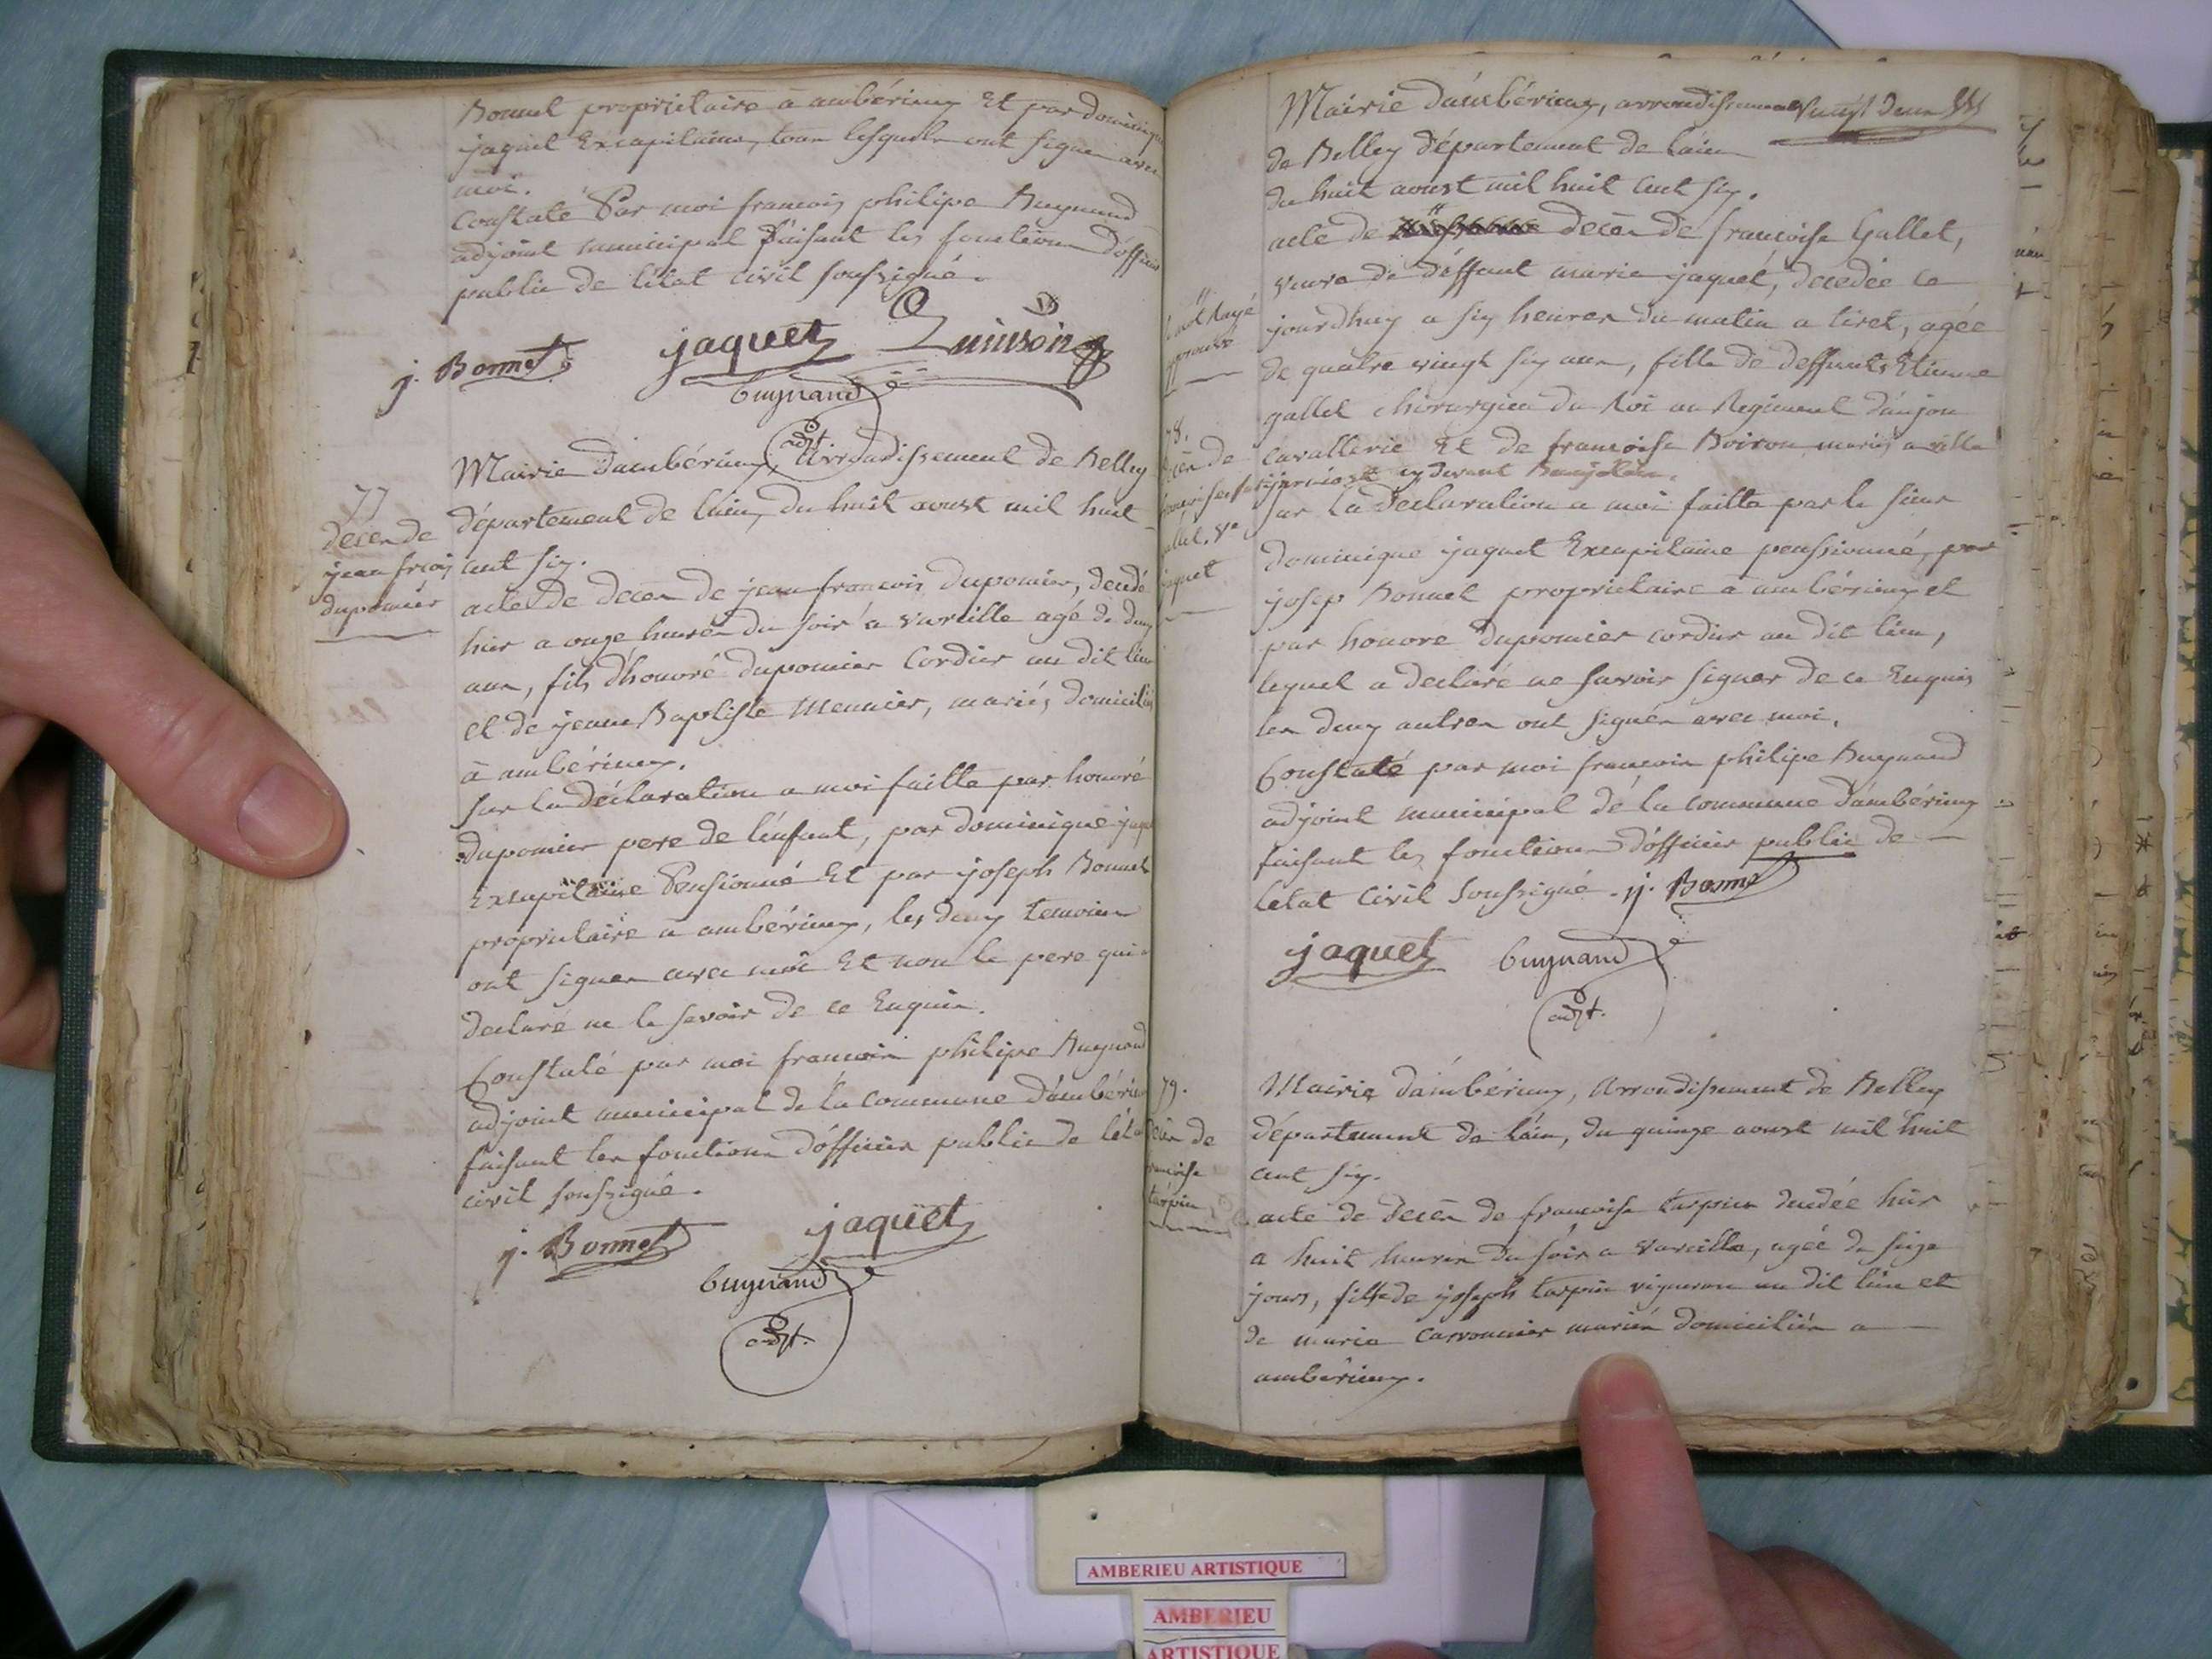 Bonnet propriétaire à ambérieux Et par dominique
jaquet Excapitaine, tous lesquels ont signer avec
moi.
Constaté Par moi francois philipe Buynand
adjoint municipal faisant les fonctions d'officier
public de l'état civil soussigné.
j. Bonnet jaquet Quinson
buynand
adjt.
77
décès de
jean frcois
dupomier
Mairie d'ambérieux, arrondissement de Belley
département de l'ain, du huit aoust mil huit
cent six.
acte de decès de jean francois dupomier, decedé
hier a onze heures du soir a vareille agé de deux
ans, fils d'honoré dupomier Cordier au dit lieu
et de jeanne Baptiste Meunier, mariés domiciliés
à ambérieux.
sur la déclaration a moi faitte par honoré
dupomier pere de l'enfant, par dominique jaquet
Excapitaine Pensionné Et par joseph Bonnet
propriétaire a ambérieux, les deux temoins
ont signer avec moi Et non le pere qui a
declaré ne le savoir de ce Enquis.
Constaté par moi francois philipe Buynand
adjoint municipal de la commune d'ambérieux
faisant les fonctions d'officier public de l'état
civil soussigné.
j. Bonnet jaquet
buynand
adjt.
Mairie d'ambérieux, arrondissement vingt deux
de Belley département de l'ain
du huit aoust mil huit cent six.
acte de decès de francoise Gallet,
veuve de déffunt marie jaquet, decedée ce
jourdhuy a six heures du matin a tiret, agée
de quatre vingt six ans, fille de deffunts Etienne
gallet chirurgien du Roi au Regiment d'anjou
cavallerie Et de francoise Boiron mariés a ville
cy devant Beaujolais.
mot Rayé
approuvé
78.
décès de
francoise
gallet, Ve
jaquet
sur la declaration a moi faitte par le sieur
dominique jaquet Excapitaine pensionné, par
josep Bonnet propriétaire à ambérieux et
par honoré dupomier cordier au dit lieu,
lequel a declaré ne savoir signer de ce Enquis
les deux autres ont signés avec moi.
Constaté par moi francois philipe Buynand
adjoint municipal de la commune d'ambérieux
faisant les fonctions d'officier public de
l'etat civil soussigné. j. Bonnet
jaquet buynand
adjt.
79.
décès de
francoise
tarpin
Mairie d'ambérieux, arrondissement de Belley
département de l'ain, du quinze aoust mil huit
cent six.
acte de decès de francoise tarpin decedée hier
a huit heures du soir a vareille, agée de seize
jours, fille de joseph tarpin vigneron au dit lieu et
de marie Carronnier mariés domiciliés a
ambérieux.
AMBERIEU ARTISTIQUE
AMBERIEU
ARTISTIQUE